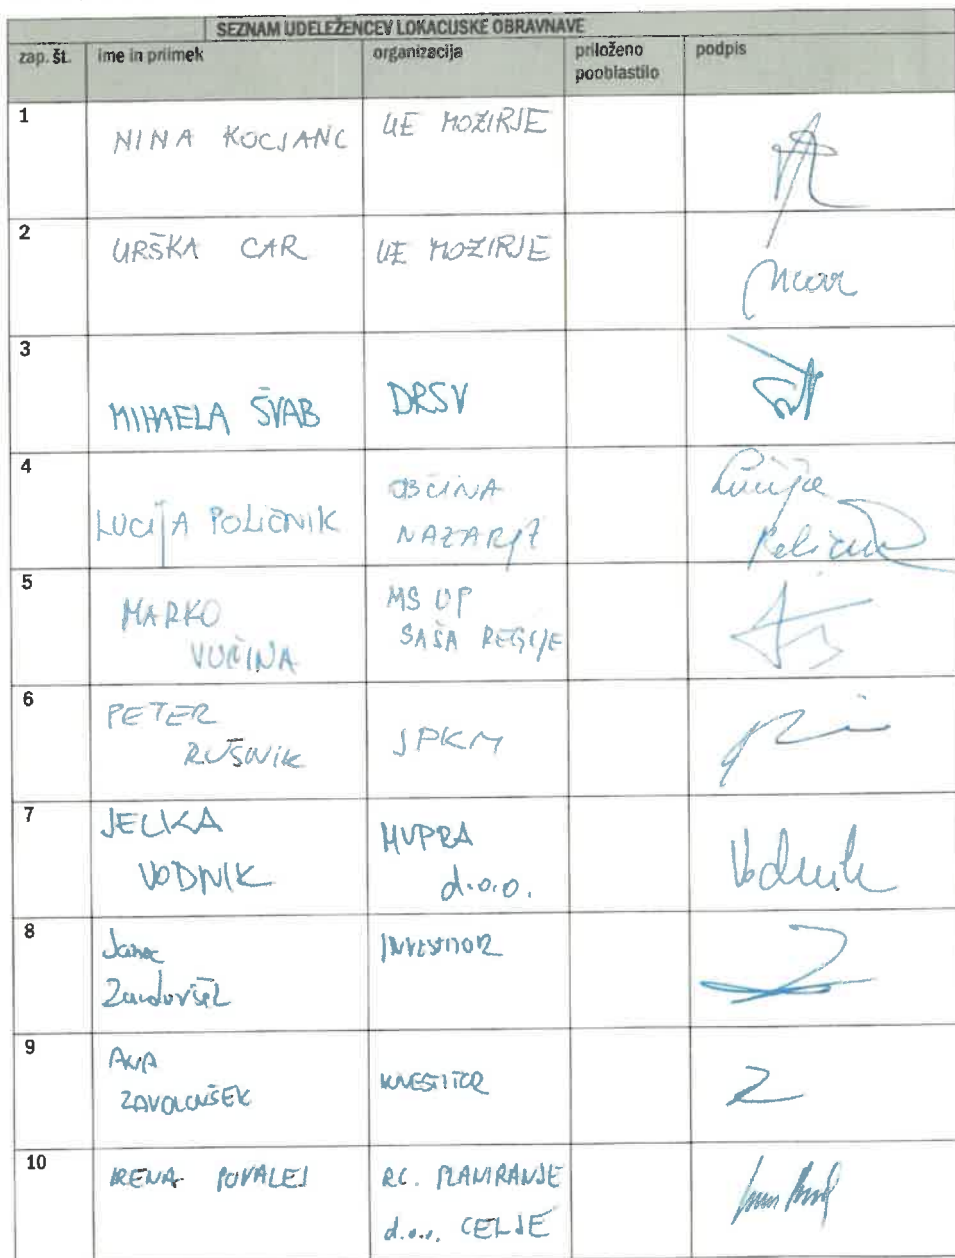 SEZNAM UDELEŽENCEV LOKACIJSKE OBRAVNAVE
zap. št. ime in priimek organizacija priloženo pooblastilo podpis
1 NINA KOCJANC UE MOZIRJE
2 URŠKA CAR UE MOZIRJE
3 MIHAELA ŠVAB DRSV
4 LUCIJA POLIČNIK OBČINA
NAZARJE
5 MARKO MS UP
VUČINA SAŠA REGIJE
6 PETER
RUŠNIK JPKM
7 JELKA MUPRA
VODNIK d.o.o. Vodnik
8 INVESTITOR
9 ANA
INVESTITOR
10 IRENA POVALEJ RC. PLANIRANJE
d.o.o. CELJE